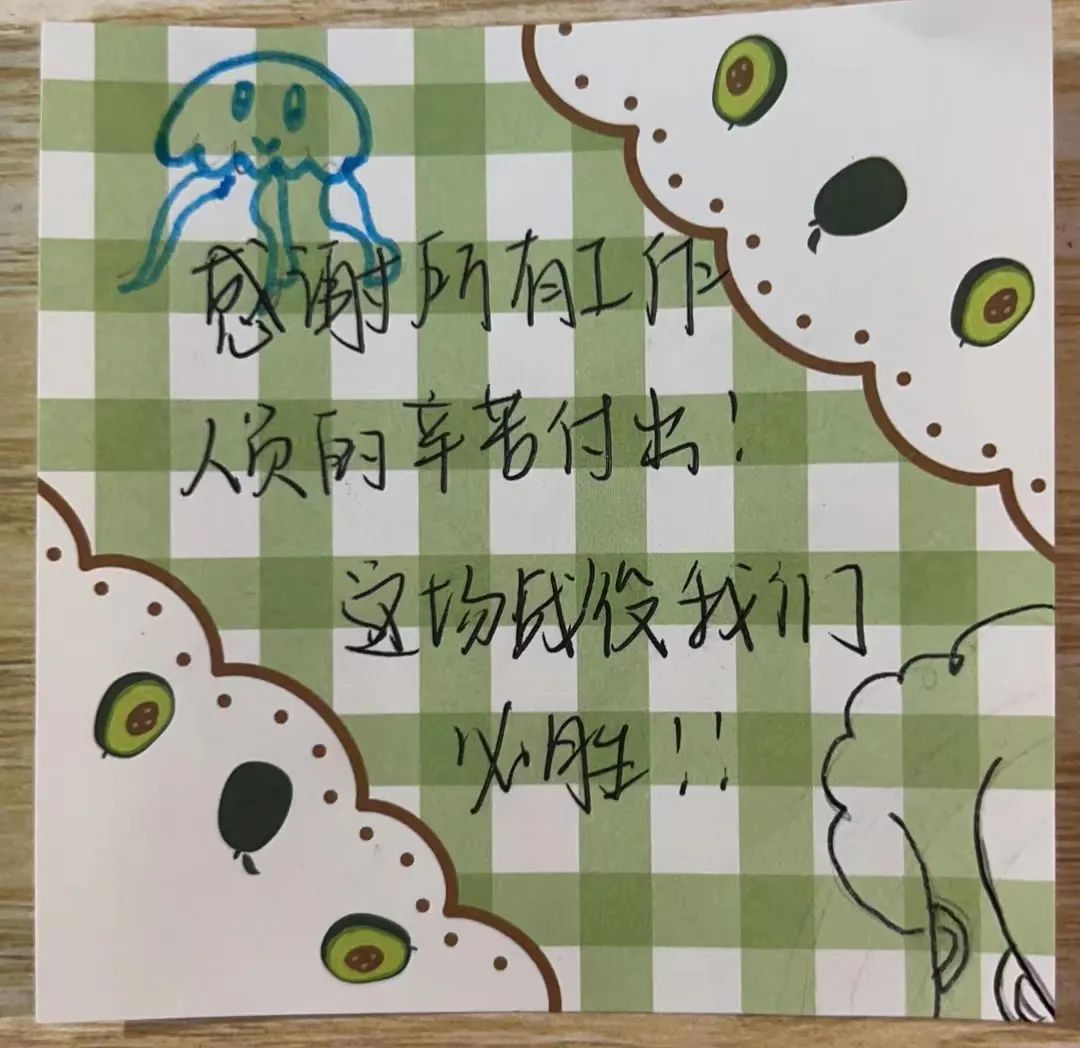 感谢所有工作
人员的辛苦付出！
这场战役我们
必胜！！